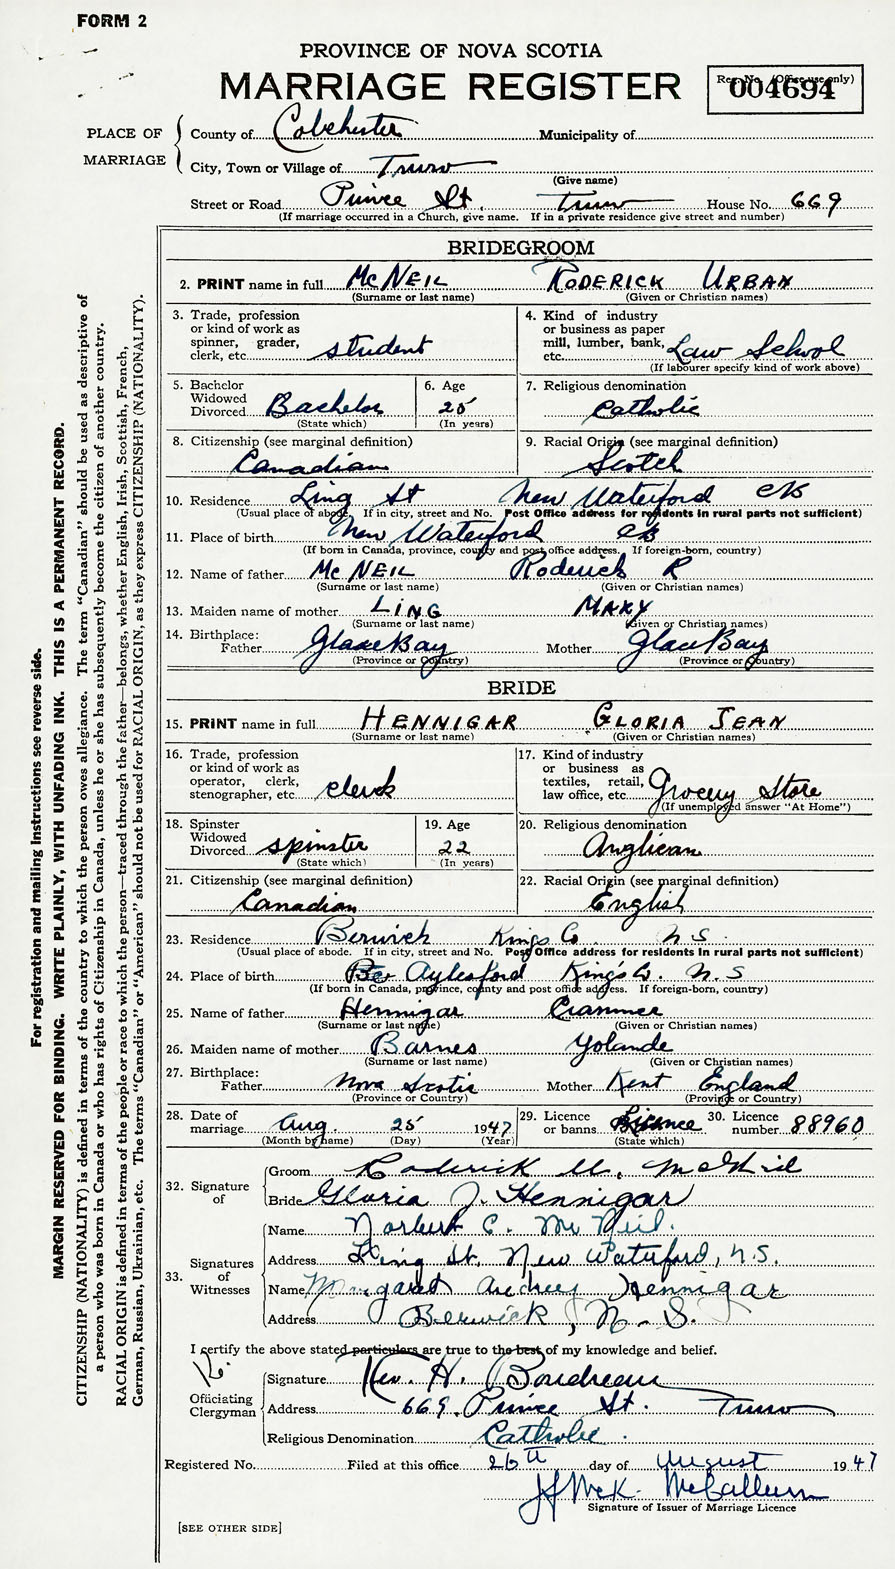 FORM 2
PROVINCE OF NOVA SCOTIA
MARRIAGE REGISTER
Reg. No. (Office use only)
004694
PLACE OF MARRIAGE
County of Colchester Municipality of
City, Town or Village of Truro
(Give name)
Street or Road Prince St. Truro House No. 669
(If marriage occurred in a Church, give name. If in a private residence give street and number)
BRIDEGROOM
2. PRINT name in full McNEIL RODERICK URBAN
(Surname or last name) (Given or Christian names)
3. Trade, profession or kind of work as spinner, grader, clerk, etc. student
4. Kind of industry or business as paper mill, lumber, bank, etc. Law School
(If labourer specify kind of work above)
5. Bachelor Widowed Divorced Bachelor
(State which)
6. Age 25
(In years)
7. Religious denomination Catholic
8. Citizenship (see marginal definition) Canadian
9. Racial Origin (see marginal definition) Scotch
10. Residence Ling St New Waterford CB
(Usual place of abode. If in city, street and No. Post Office address for residents in rural parts not sufficient)
11. Place of birth New Waterford CB
(If born in Canada, province, county and post office address. If foreign-born, country)
12. Name of father McNEIL Roderick R
(Surname or last name) (Given or Christian names)
13. Maiden name of mother LING MARY
(Surname or last name) (Given or Christian names)
14. Birthplace:
Father Glace Bay Mother Glace Bay
(Province or Country) (Province or Country)
BRIDE
15. PRINT name in full HENNIGAR GLORIA JEAN
(Surname or last name) (Given or Christian names)
16. Trade, profession or kind of work as operator, clerk, stenographer, etc. clerk
17. Kind of industry or business as textiles, retail, law office, etc. Grocery Store
(If unemployed answer "At Home")
18. Spinster Widowed Divorced spinster
(State which)
19. Age 22
(In years)
20. Religious denomination Anglican
21. Citizenship (see marginal definition) Canadian
22. Racial Origin (see marginal definition) English
23. Residence Berwick Kings Co N S
(Usual place of abode. If in city, street and No. Post Office address for residents in rural parts not sufficient)
24. Place of birth Aylesford King's Co. N. S
(If born in Canada, province, county and post office address. If foreign-born, country)
25. Name of father Hennigar Cranmer
(Surname or last name) (Given or Christian names)
26. Maiden name of mother Barnes Yolande
(Surname or last name) (Given or Christian names)
27. Birthplace:
Father Nova Scotia Mother Kent England
(Province or Country) (Province or Country)
28. Date of marriage Aug. 25 1947
(Month by name) (Day) (Year)
29. Licence or banns Licence
(State which)
30. Licence number 88960
32. Signature of
Groom Roderick U. McNeil
Bride Gloria J. Hennigar
33. Signatures of Witnesses
Name Norbert C. McNeil.
Address Ling St, New Waterford, N.S.
Name Margaret Audrey Hennigar
Address Berwick, N. S.
I certify the above stated particulars are true to the best of my knowledge and belief.
Officiating Clergyman
Signature Rev. H. Boudreau
Address 669 Prince St. Truro
Religious Denomination Catholic.
Registered No. Filed at this office 26th day of August 1947
J McK. McCallum
Signature of Issuer of Marriage Licence
[SEE OTHER SIDE]
For registration and mailing instructions see reverse side.
MARGIN RESERVED FOR BINDING. WRITE PLAINLY, WITH UNFADING INK. THIS IS A PERMANENT RECORD.
CITIZENSHIP (NATIONALITY) is defined in terms of the country to which the person owes allegiance. The term "Canadian" should be used as descriptive of
a person who was born in Canada or who has rights of Citizenship in Canada, unless he or she has subsequently become the citizen of another country.
RACIAL ORIGIN is defined in terms of the people or race to which the person—traced through the father—belongs, whether English, Irish, Scottish, French,
German, Russian, Ukrainian, etc. The terms "Canadian" or "American" should not be used for RACIAL ORIGIN, as they express CITIZENSHIP (NATIONALITY).